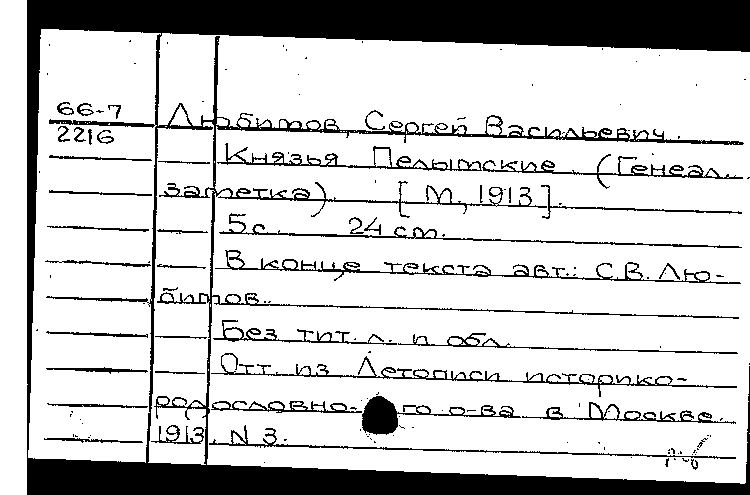 66-7
2216
Любимов, Сергей Васильевич.
Князья Пелымские (Генеал.
заметка). [М., 1913].
5 с. 24 см.
В конце текста авт.: С.В. Лю-
бимов.
Без тит. л. и обл.
Отт. из Летописи историко-
родословно-го о-ва в Москве.
1913. N 3.